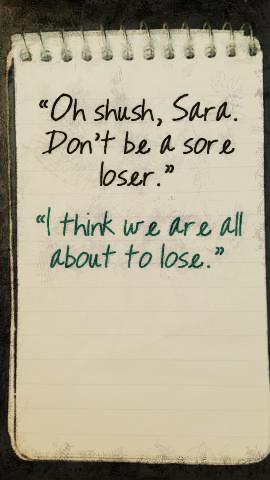 “Oh shush, Sara.
Don't be a sore
loser.”
“I think we are all
about to lose.”